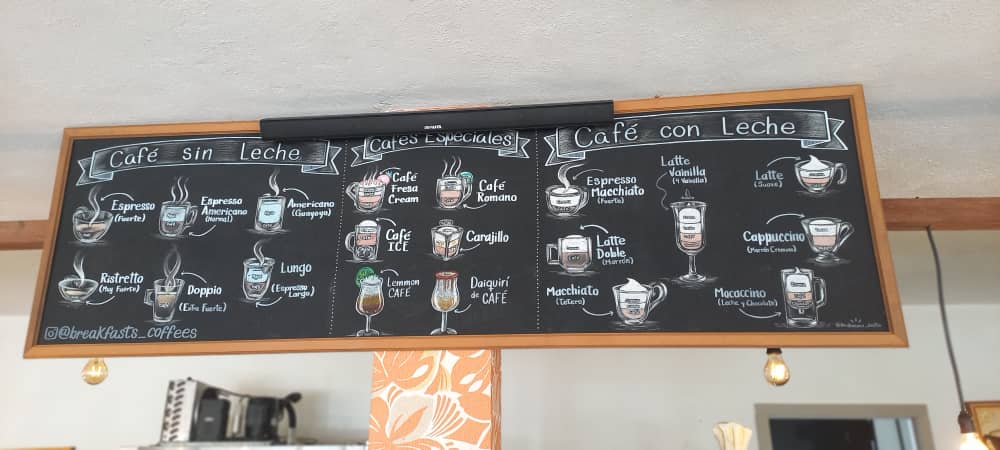 Café sin Leche
Espresso
(Fuerte)
Espresso
Americano
(Normal)
Americano
(Guayoyo)
Ristretto
(Muy Fuerte)
Doppio
(Extra Fuerte)
Lungo
(Espresso
Largo)
@breakfasts_coffees
Cafés Especiales
Café
Fresa
Cream
Café
Romano
Café
ICE
Carajillo
Lemmon
CAFÉ
Daiquirí
de CAFÉ
Café con Leche
Espresso
Macchiato
(Fuerte)
Latte
Vainilla
(Y Vainilla)
Latte
(Suave)
Latte
Doble
(Marrón)
Cappuccino
(Marrón Cremoso)
Macchiato
(Tetero)
Mocaccino
(Leche y Chocolate)